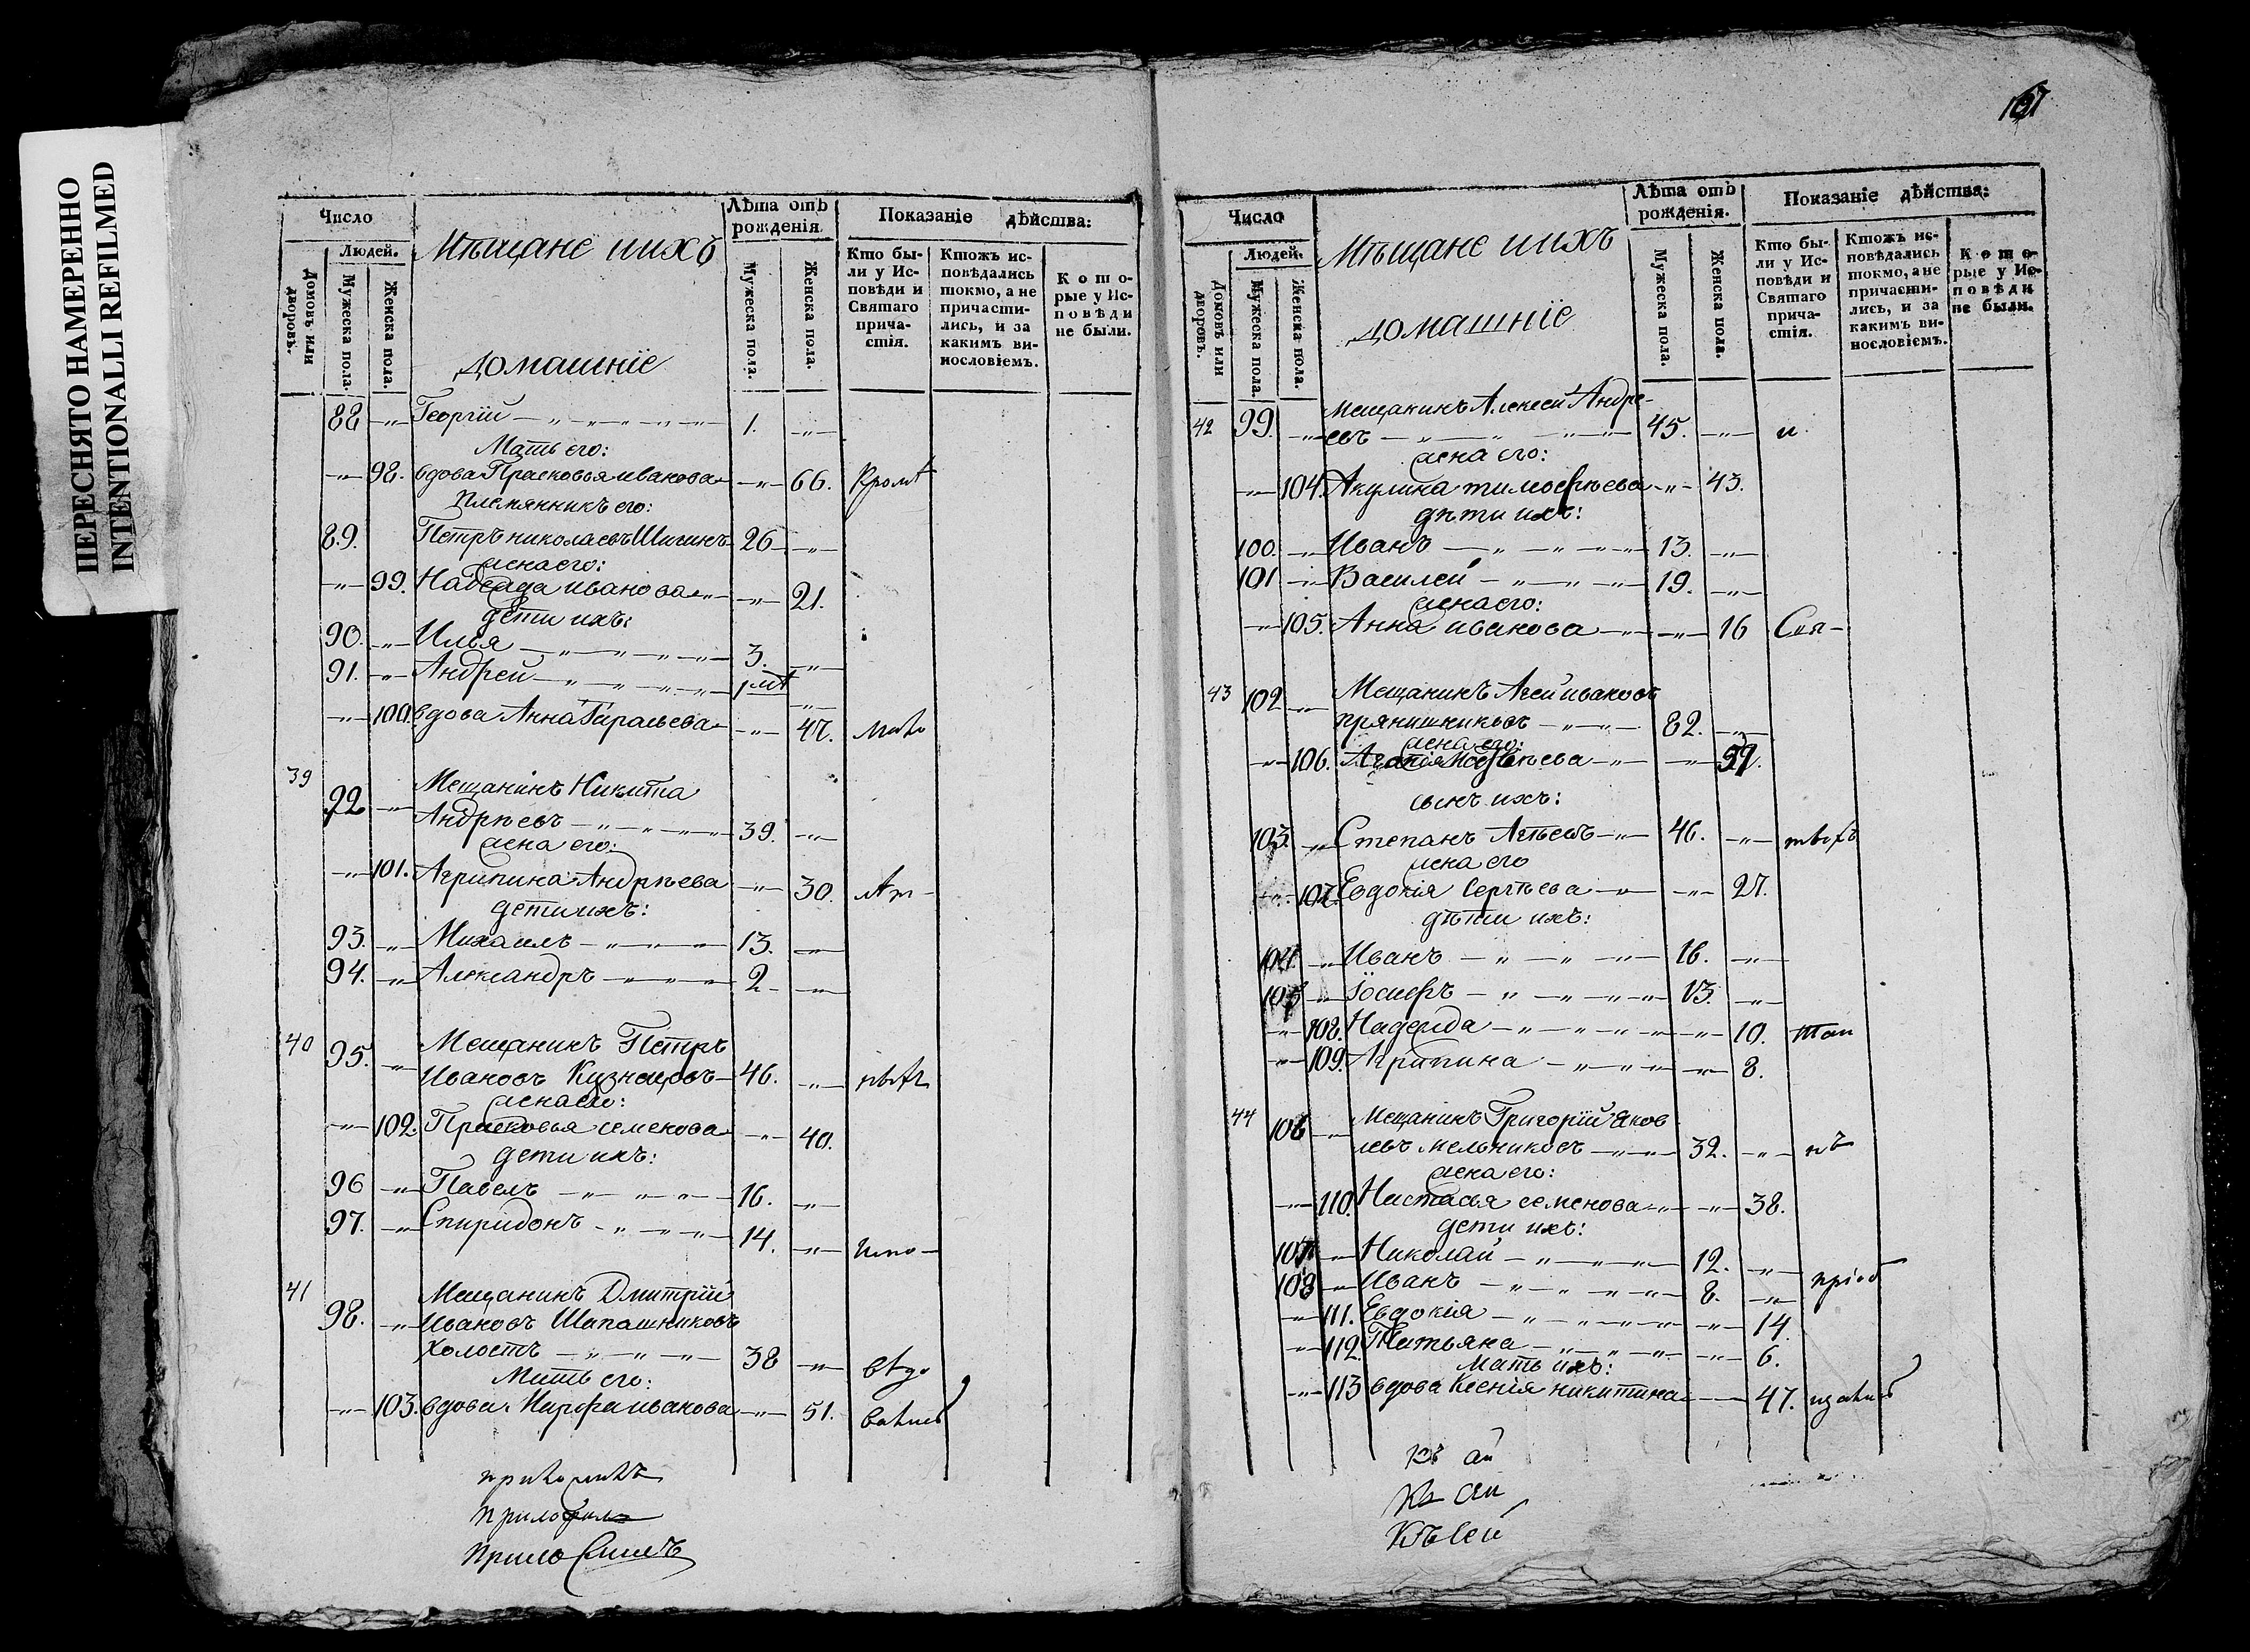 ПЕРЕСНЯТО НАМЕРЕННО
INTENTIONALLI REFILMED
Число
Людей.
Домовъ или дворовъ.
Мужеска пола.
Женска пола.
Мѣщане и ихъ
домашніе
Лѣта отъ рожденія.
Мужеска пола.
Женска пола.
Показаніе дѣйства:
Кто бы-
ли у Ис-
повѣди и
Святаго
прича-
стія.
Ктожъ ис-
повѣдались
токмо, а не
причасти-
лись, и за
какимъ ви-
нословіемъ.
Кото-
рые у Ис-
повѣди
не были.
88 Георгій 1.
Мать его:
98. вдова Прасковья иванова 66.
Племянникъ его:
89. Петръ николаевъ 26
жена его:
99. Надежда иванова 21.
дети ихъ:
90. Илья 3.
91. Андрей 1
100 вдова Анна 47.
39
92 Мещанинъ Никита
Андрѣевъ 39.
жена его:
101. Агрипина Андрѣева 30.
дети ихъ:
93. Михаилъ 13.
94. Александръ 2
40
95. Мещанинъ Петръ
Ивановъ Кузнецовъ 46.
жена его:
102. Прасковья семенова 40.
дети ихъ:
96 Павелъ 16.
97. Спиридонъ 14.
41
98. Мещанинъ Дмитрій
Ивановъ Шапашниковъ
Холостъ 38
Мать его:
103. вдова Марфа иванова 51.
167
Число
Людей.
Домовъ или дворовъ.
Мужеска пола.
Женска пола.
Мѣщане и ихъ
домашніе
Лѣта отъ рожденія.
Мужеска пола.
Женска пола.
Показаніе дѣйства:
Кто бы-
ли у Ис-
повѣди и
Святаго
прича-
стія.
Ктожъ ис-
повѣдались
токмо, а не
причасти-
лись, и за
какимъ ви-
нословіемъ.
Кото-
рые у Ис-
повѣди
не были.
42 99. Мещанинъ Алексей Андре-
евъ 45. и
жена его:
104. Акулина тимофѣева 43.
дѣти ихъ:
100. Иванъ 13.
101 Василей 19.
жена его:
105. Анна иванова 16
43 102 Мещанинъ Агей ивановъ
прянишниковъ 82.
жена его:
106.
сынъ ихъ:
103. Степанъ Агѣевъ 46.
жена его
107. Евдокія Сергѣева 27.
дѣти ихъ:
104. Иванъ 16.
105 Іосифъ 13.
108. Надежда 10.
109. Агрипина 8.
44 106 Мещанинъ Григорій Яков
левъ мельниковъ 32.
жена его:
110. Настасья семенова 38.
дети ихъ:
107 Николай 12.
108 Иванъ 8.
111. Евдокія 14.
112. Татьяна 6.
Мать ихъ:
113 вдова Ксенія никитина 47.